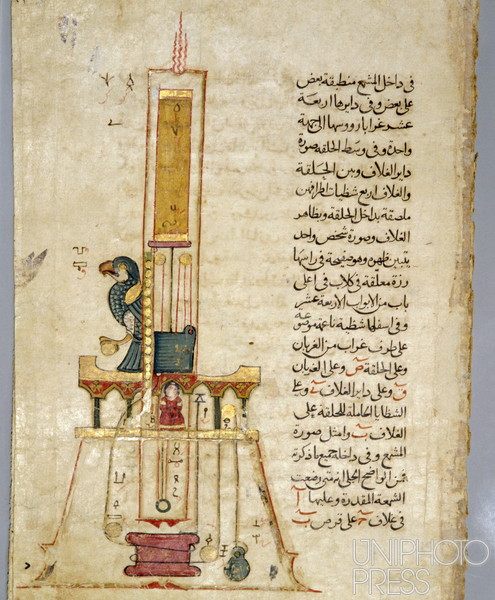 في داخل المشمع منطبقة بعض
على بعض وفي دايرها اربعة
عشر غرابا رووسها الى جهة
واحدة وفي وسط الحلقة صورة
داير الغلاف وبين الحلقة
والغلاف اربع شظيات اطرافهن
ملصقة بداخل الحلقة وبظاهر
الغلاف وصورة شخص واحد
يتبين ظهره وهو صفيحة في راسها
رزة معلقة في كلاب في اعلى
باب من الابواب الاربعة عشر
وفي اسفلها شظية ناعمة موضوعه
على طرف غراب من الغربان
وعلى الحلقة ص وعلى الغربان
ق وعلى داير الغلاف وعلى
الشظايا الحاملة للحلقة على
الغلاف وامثل صورة
المشمع وفي داخله جميع ما ذكرته
فمن الواضح الجلي انه متى وضعت
الشمعة المقدرة وعليها
في غلاف على قرص
UNIPHOTO
PRESS